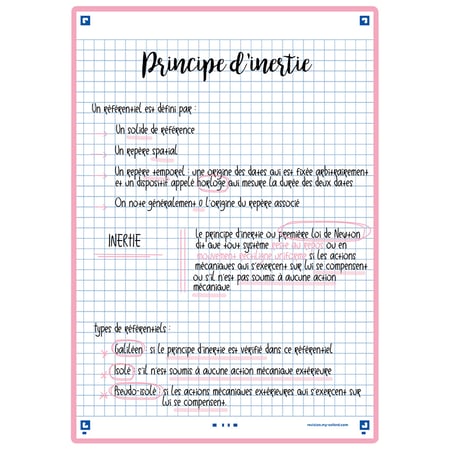 Principe d'inertie
Un référentiel est défini par :
Un solide de référence
Un repère spatial
Un repère temporel : une origine des dates qui est fixée arbitrairement
et un dispositif appelé horloge qui mesure la durée des deux dates
On note généralement O l'origine du repère associé
INERTIE
Le principe d'inertie ou première loi de Newton
dit que tout système reste au repos ou en
mouvement rectiligne uniforme si les actions
mécaniques qui s'exercent sur lui se compensent
ou s'il n'est pas soumis à aucune action
mécanique.
Types de référentiels :
Galiléen si le principe d'inertie est vérifié dans ce référentiel
Isolé s'il n'est soumis à aucune action mécanique extérieure
Pseudo-isolé si les actions mécaniques extérieures qui s'exercent sur
lui se compensent.
revision.my-oxford.com